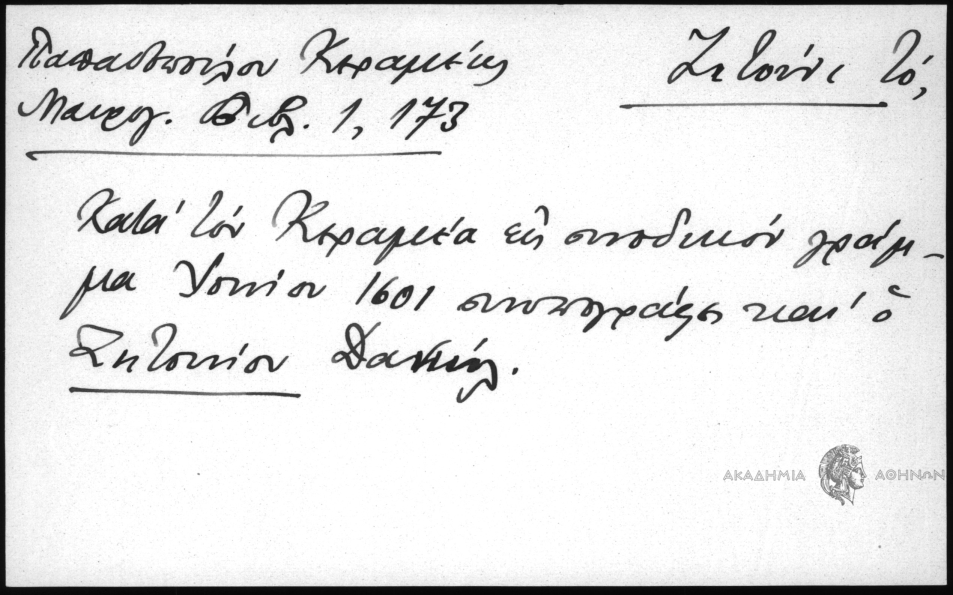 Παπαδοπούλου Κεραμέως
Μαυρογ. Βιβλ. 1, 173
Ζητούνι τό,
Κατά τόν Κεραμέα εἰς συνοδικόν γράμ-
μα Ἰουνίου 1601 συνυπογράφει καί ὁ
Ζητουνίου Δανιήλ.
ΑΚΑΔΗΜΙΑ ΑΘΗΝΩΝ